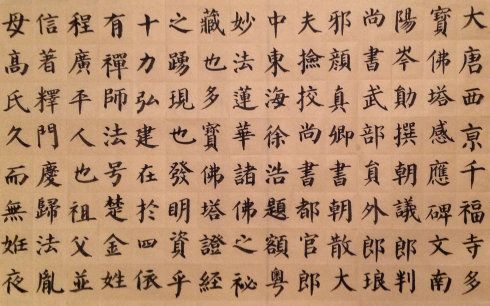 大唐西亰千福寺多
寶佛塔感應碑文南
陽岑勛撰朝議郎判
尚書武部員外郎琅
邪顏真卿書朝散大
夫撿挍尚書都官郎
中東海徐浩題額粵
妙法蓮華諸佛之祕
藏也多寶佛塔證經
之踴現也發明資乎
十力弘建在於四依
有禪師法号楚金姓
程廣平人也祖父並
信著釋門慶歸法胤
母高氏久而無姙夜